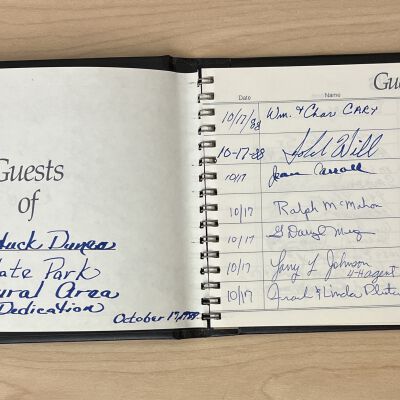 Guests
of
huck Dunes
tate Park
ural Area
Dedication
October 17, 1988
Gue
Date Name
10/17/88 Wm. & Char CARY
10-17-88 Will
10/17 Jean Carroll
10/17 Ralph McMahon
10/17 G Daryl
10/17 Larry L Johnson
4-H agent
10/17 & Linda